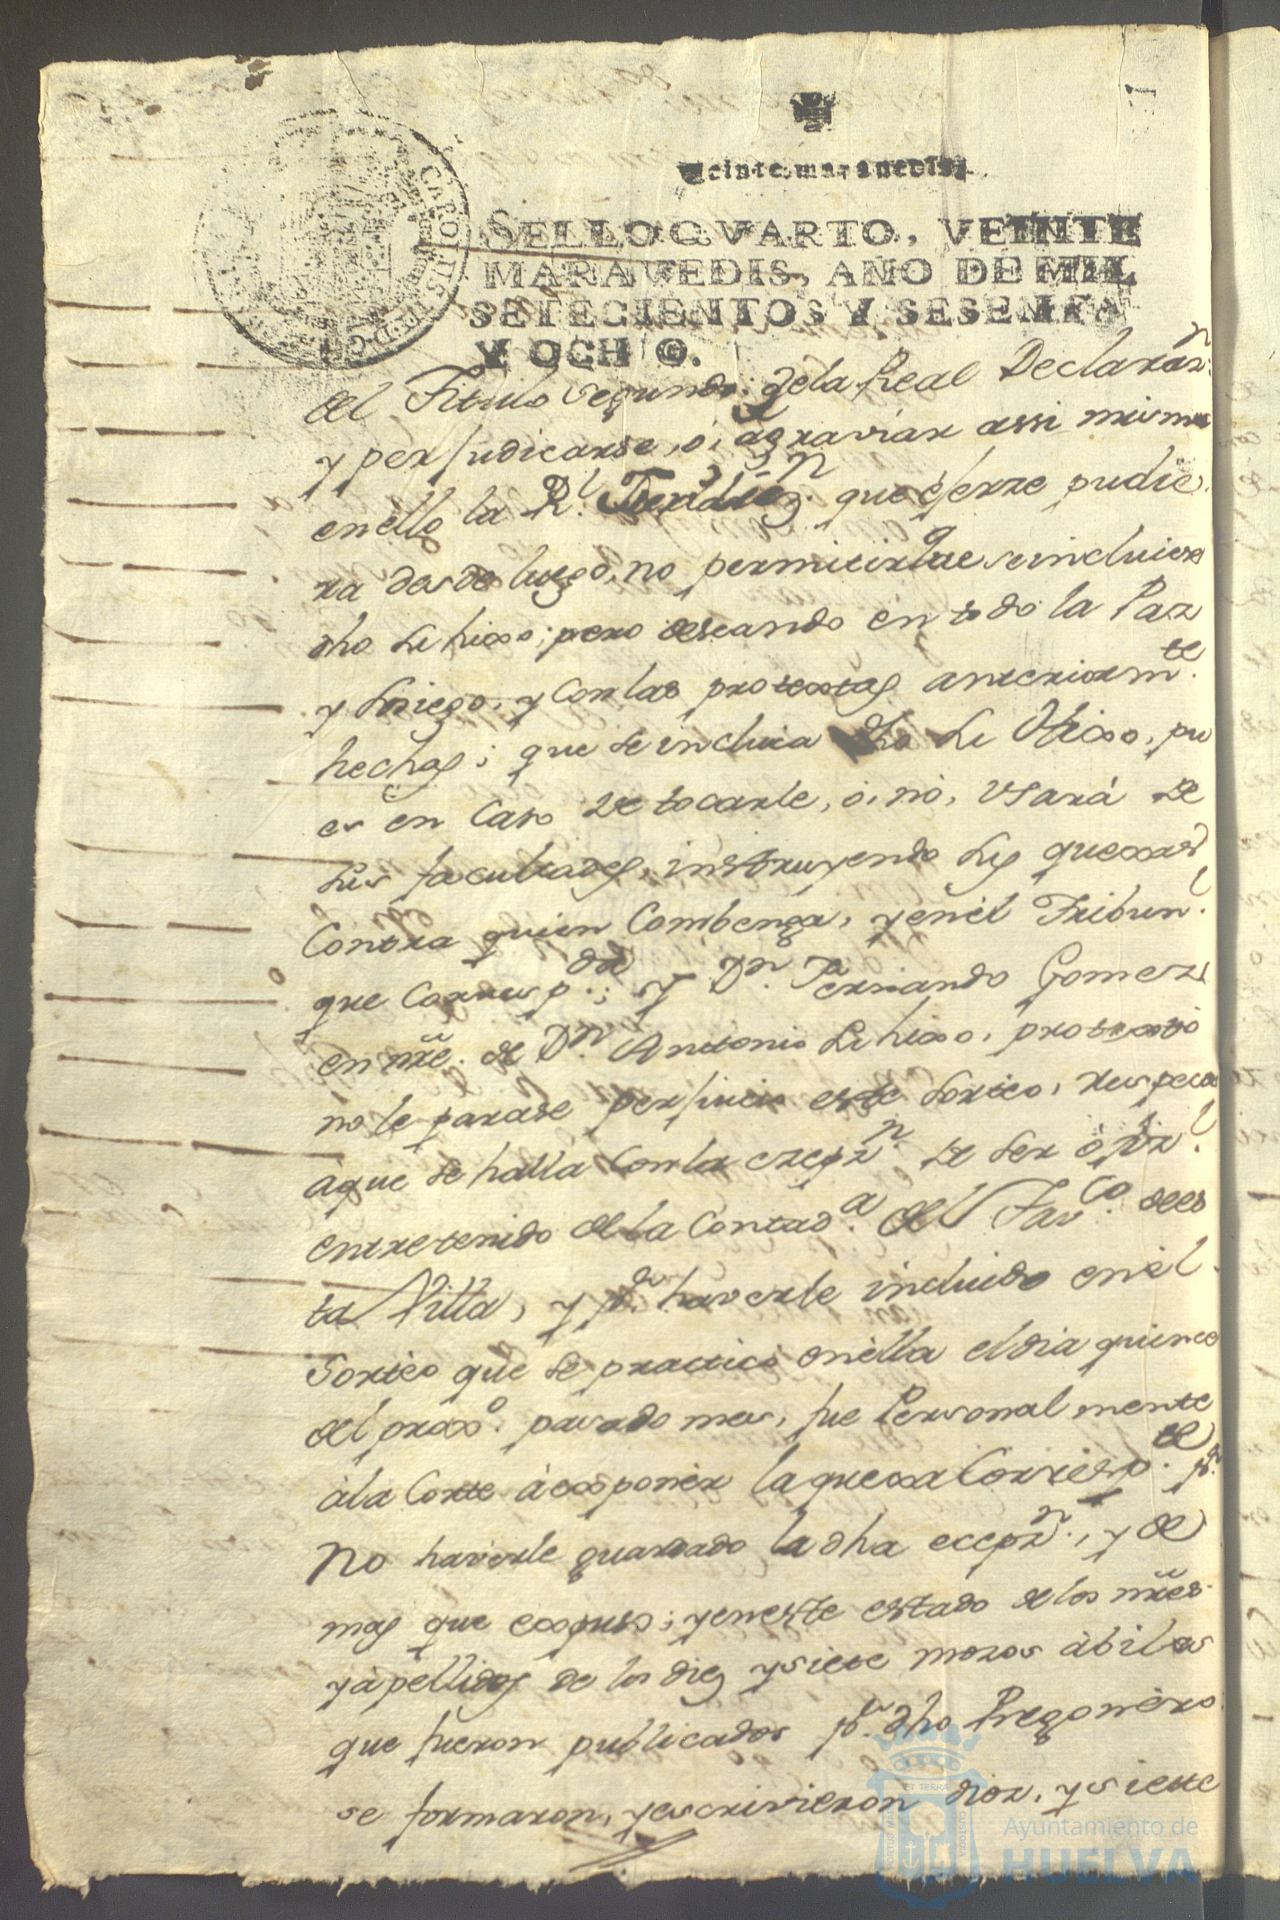 Veinte maravedis.
SELLO QVARTO, VEINTE
MARAVEDIS, AÑO DE MIL
SETECIENTOS Y SESENTA
Y OCHO.
CAROLUS III D G
del Titulo segundo de la Real Declaraz.n
y perjudicarse, ó, agraviar assi mismo
en ello la R.l Jurisdiz.n que ejerze pudie
ra desde luego, no permitir que se incluiese
dho Lihiao; pero deseando en todo la Paz
y sosiego, y con las protextas anteriorm.te
hechas; que se incluia dho Li
es en Caso de tocarle, ó, nó, Usará de
sus facultades, instruyendo sus quexas
Contra quien Combenga, y en el Tribun.l
que Corresp.de; y D.n Fernando Gomez
en nre. de D.n Antonio protextó
no le parase perjuicio este Sorteo, respecto
àque se halla con la exepz.n de ser
entretenido de la Contad.a del Tav.co de es
ta Villa, y p.r haverle incluido en el
Sorteo que se practicó en ella el dia quince
del prox.o pasado mes, fue Personalmente
àla Corte à exponer la quexa Corresp.te p.r
No haverle guardado la dha ecepz.n, y de
mas que expuso; y en este estado de los nres.
y apellidos de los diez y siete mozos àbiles
que fueron publicados p.r dho Pregonero
se formaron, y escrivieron diez, y siete
Ayuntamiento de
HUELVA